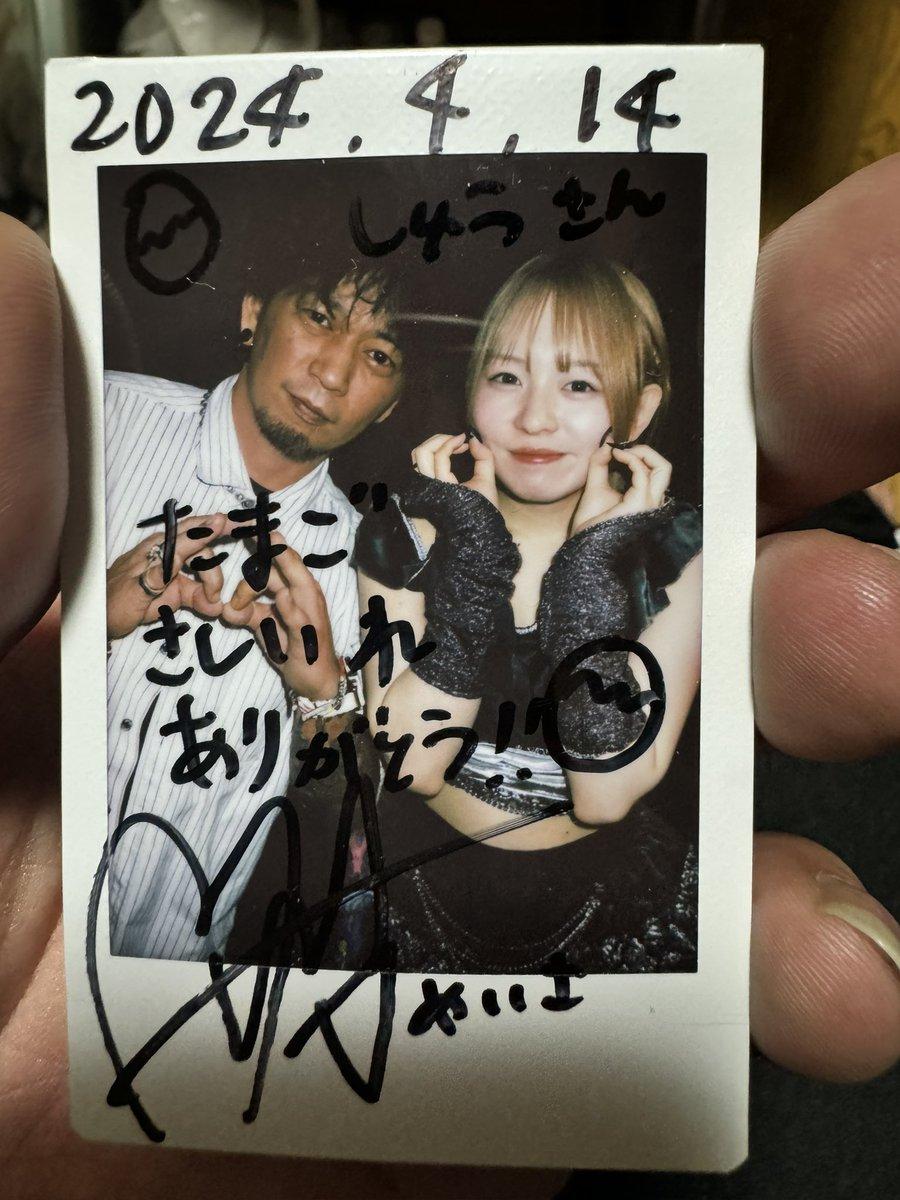 2024.4.14
しゅうさん
たまご
さしいれ
ありがとう!!